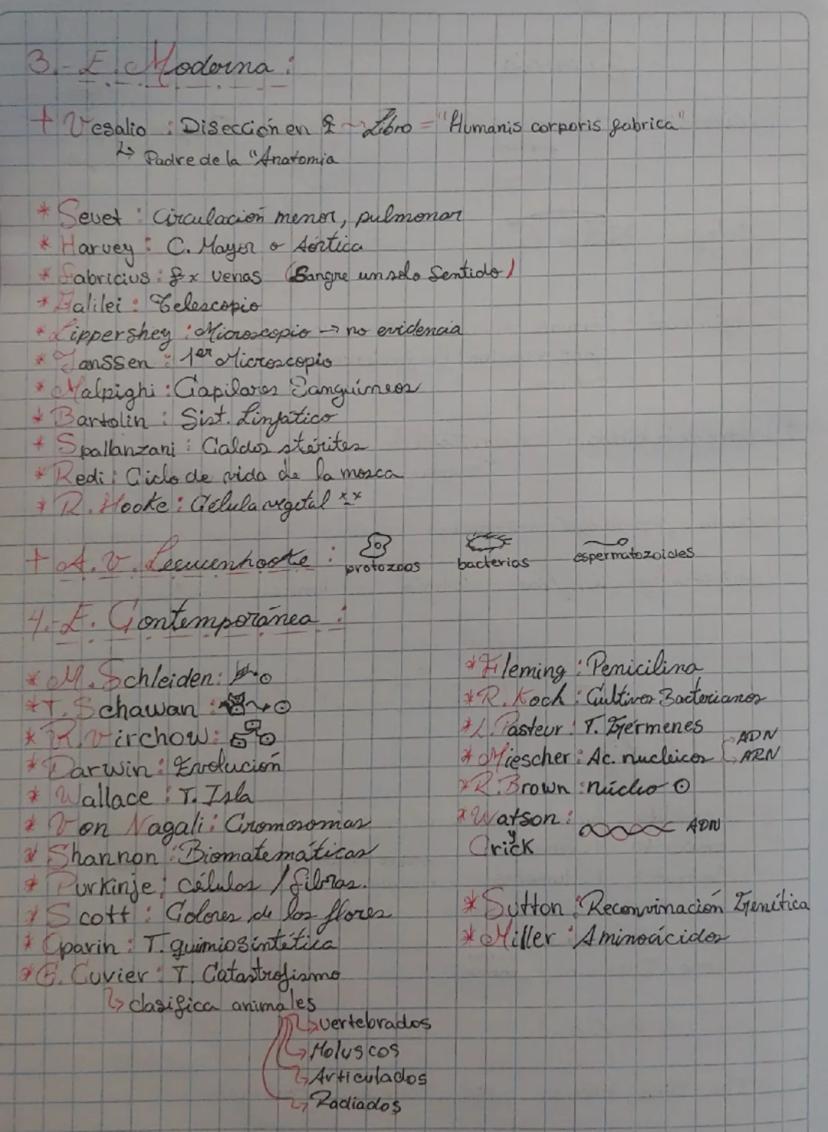 3.- E. Moderna :
+ Vesalio : Disección en ~ Libro = "Humanis corporis fabrica"
↳ Padre de la "Anatomia
* Sevet : Circulación menor, pulmonar
* Harvey : C. Mayor o Aórtica
* Fabricius : x venas (Sangre un solo Sentido)
* Galilei : Telescopio
* Lippershey : Microscopio → no evidencia
* Janssen : 1er Microscopio
* Malpighi : Capilares Sanguíneos
* Bartolin : Sist. Linfático
+ Spallanzani : Caldos
* Redi : Ciclo de vida de la mosca
* R. Hooke : Célula vegetal **
+ A. V. Leeuwenhooke : protozoos bacterias espermatozoides
4.- E. Contemporánea :
* M. Schleiden :
* T. Schawan :
* R. Virchow :
* Darwin : Evolución
* Wallace : T. Isla
* Von Nagali : Cromosomas
* Shannon : Biomatemáticas
* Purkinje : Células / fibras.
* Scott : Colores de las flores
* Oparin : T. quimiosintética
* G. Cuvier : T. Catastrofismo
↳ clasifica animales
↳ vertebrados
↳ Moluscos
↳ Articulados
↳ Radiados
* Fleming : Penicilina
* R. Koch : Cultivos Bacterianos
* L. Pasteur : T. Gérmenes
* Miescher : Ac. nucleicos ADN
ARN
* R. Brown : núcleo
* Watson :
y ADN
Crick
* Sutton : Reconvinación Genética
* Miller : Aminoácidos